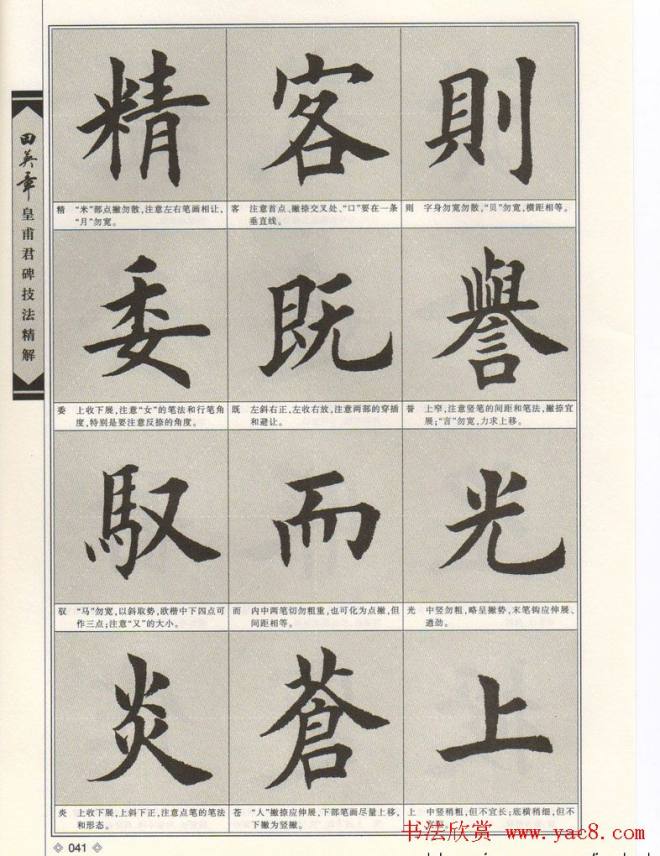 田英章
皇甫君碑技法精解
精 客 則
精 “米”部点撇勿散,注意左右笔画相让,
“月”勿宽。
客 注意首点、撇捺交叉处、“口”要在一条
垂直线。
则 字身勿宽勿散,“贝”勿宽,横距相等。
委 既 譽
委 上收下展,注意“女”的笔法和行笔角
度,特别是要注意反捺的角度。
既 左斜右正,左收右放,注意两部的穿插
和避让。
誉 上窄,注意竖笔的间距和笔法,撇捺宜
展;“言”勿宽,力求上移。
馭 而 光
驭 “马”勿宽,以斜取势,欧楷中下四点可
作三点;注意“又”的大小。
而 内中两笔切勿粗重,也可化为点撇,但
间距相等。
光 中竖勿粗,略呈撇势,末笔钩应伸展、
遒劲。
炎 蒼 上
炎 上收下展,上斜下正,注意点笔的笔法
和形态。
苍 “人”撇捺应伸展,下部笔画尽量上移,
下撇为竖撇。
上 中竖稍粗,但不宜长;底横稍细,但不
041
书法欣赏 www.yac8.com